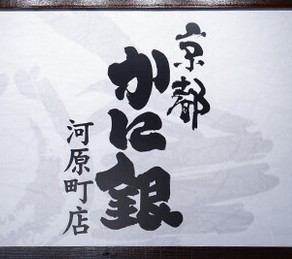 京都
かに銀
河原町店